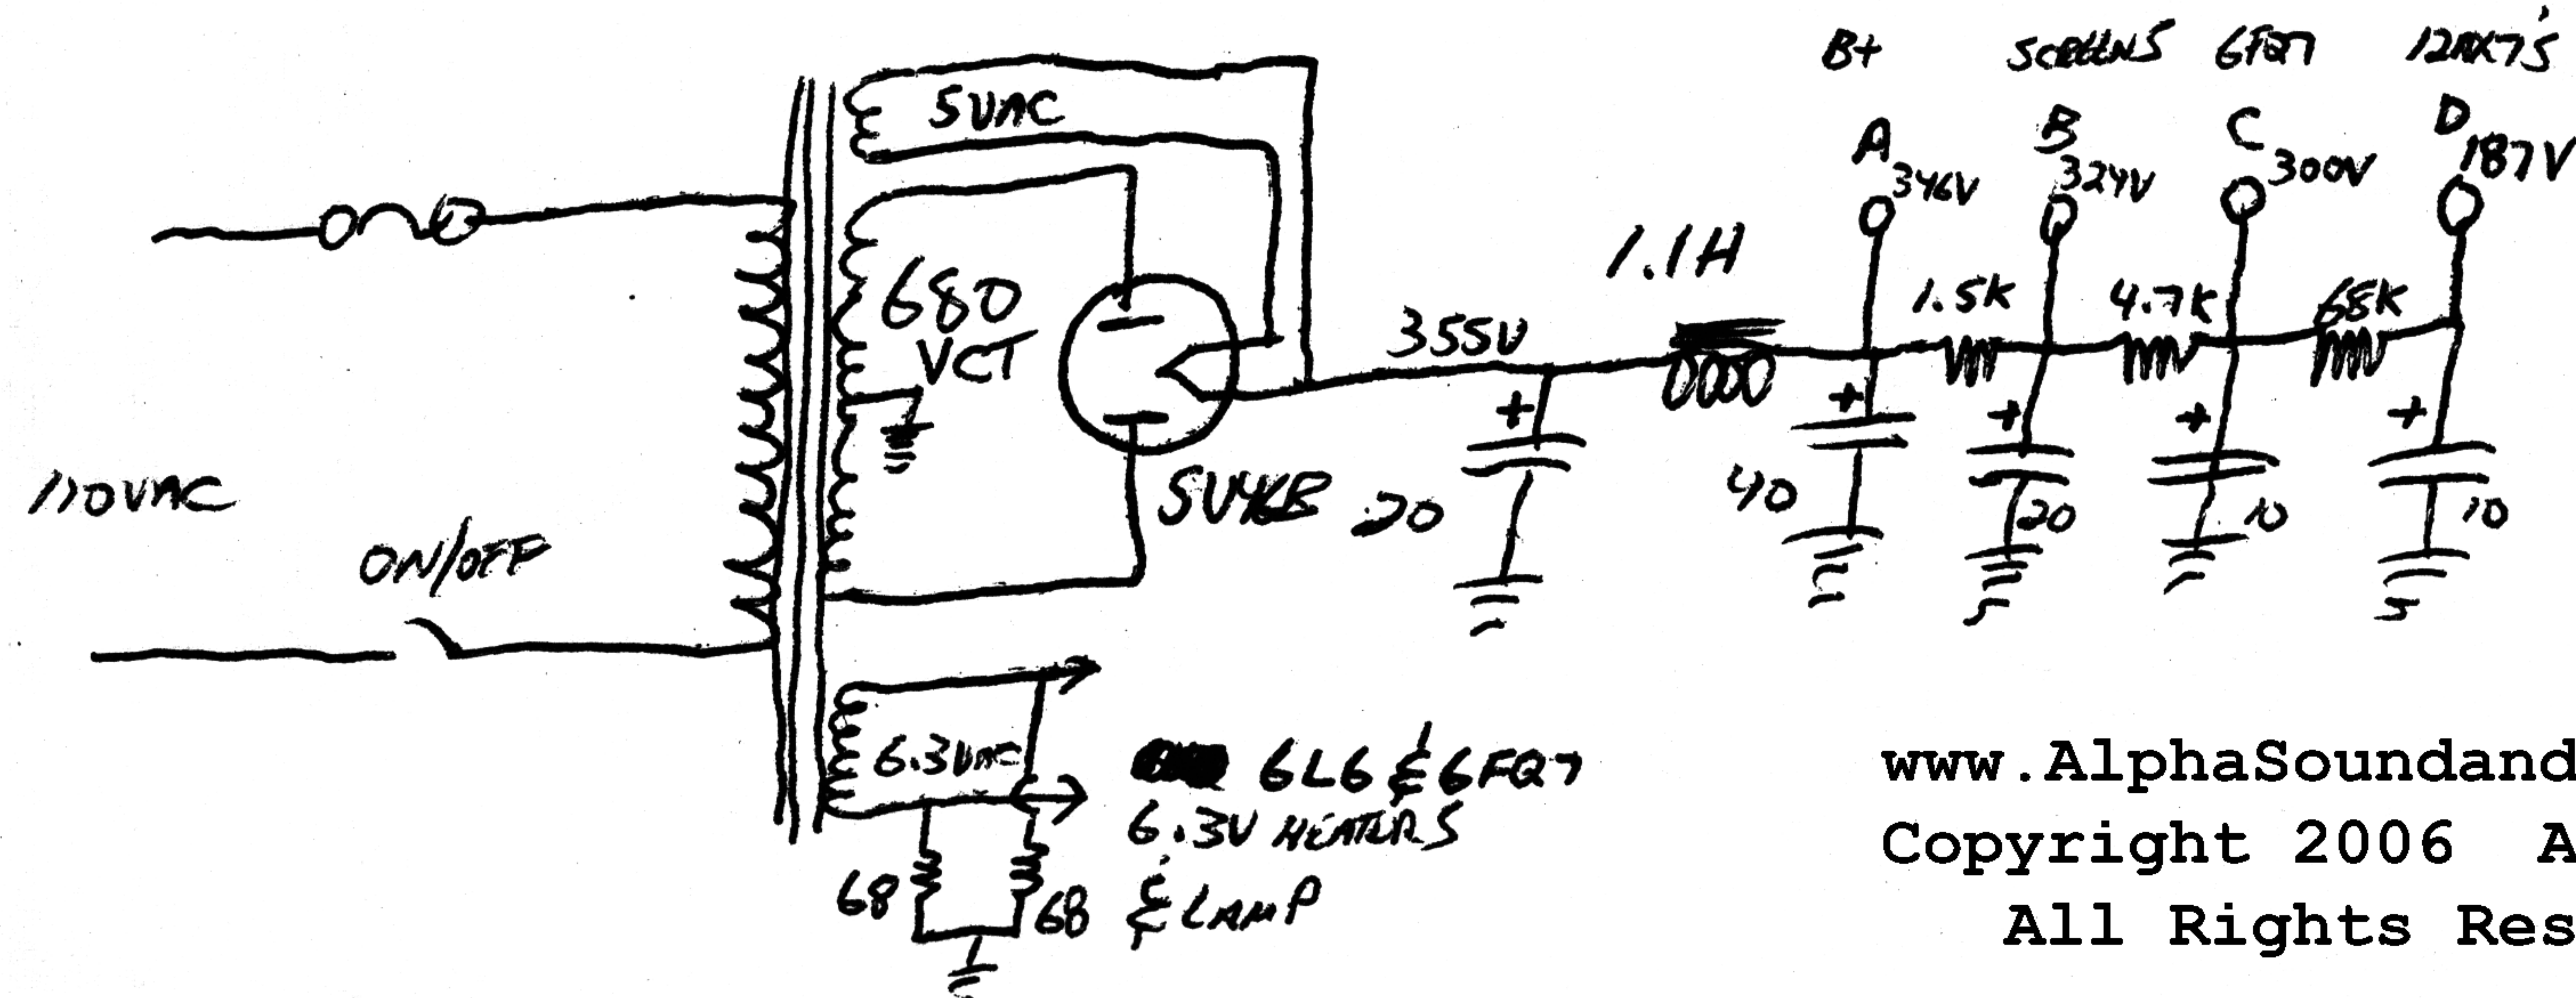 B+ SCREENS 6FQ7 12AX7'S
A B C D
346V 324V 300V 187V
5VAC
680
VCT
355V
1.1H
1.5K 4.7K 68K
+ + + + +
5U4GB
20 40 20 10 10
110VAC
ON/OFF
6.3VAC
6L6 & 6FQ7
6.3V HEATERS
& LAMP
68 68
www.AlphaSoundand
Copyright 2006 A
All Rights Res